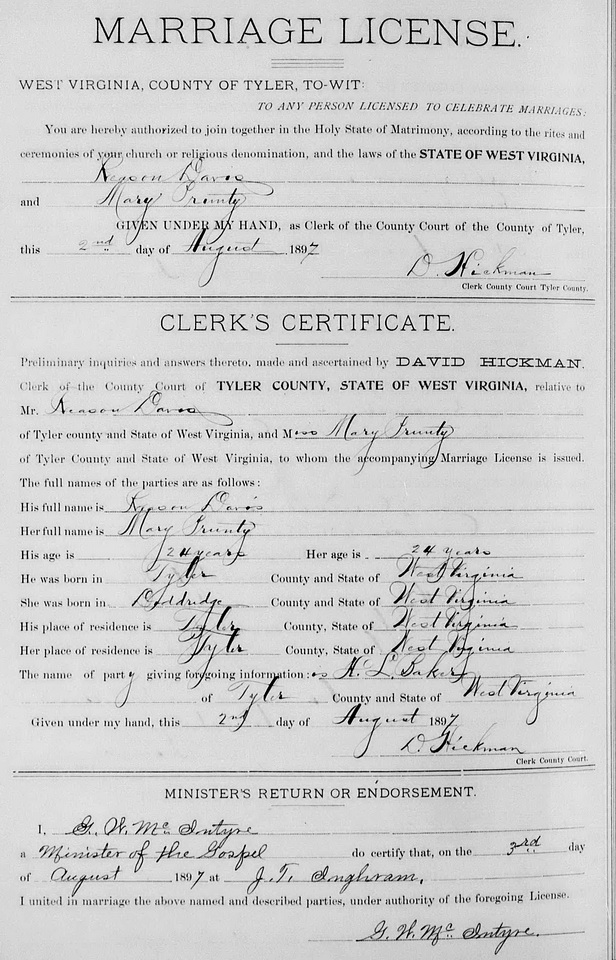 MARRIAGE LICENSE.
WEST VIRGINIA, COUNTY OF TYLER, TO-WIT:
TO ANY PERSON LICENSED TO CELEBRATE MARRIAGES:
You are hereby authorized to join together in the Holy State of Matrimony, according to the rites and
ceremonies of your church or religious denomination, and the laws of the STATE OF WEST VIRGINIA,
Reason Davis
and Mary Prunty
GIVEN UNDER MY HAND, as Clerk of the County Court of the County of Tyler,
this 2nd day of August 1897
D. Hickman
Clerk County Court Tyler County.
CLERK'S CERTIFICATE.
Preliminary inquiries and answers thereto, made and ascertained by DAVID HICKMAN.
Clerk of the County Court of TYLER COUNTY, STATE OF WEST VIRGINIA, relative to
Mr. Reason Davis
of Tyler county and State of West Virginia, and Miss Mary Prunty
of Tyler County and State of West Virginia, to whom the accompanying Marriage License is issued.
The full names of the parties are as follows:
His full name is Reason Davis
Her full name is Mary Prunty
His age is 24 years Her age is 24 years
He was born in Tyler County and State of West Virginia
She was born in Doddridge County and State of West Virginia
His place of residence is Tyler County, State of West Virginia
Her place of residence is Tyler County, State of West Virginia
The name of party giving foregoing information: is L. Baker
of Tyler County and State of West Virginia
Given under my hand, this 2nd day of August 1897
D. Hickman
Clerk County Court.
MINISTER'S RETURN OR ENDORSEMENT.
I, G. W. Mc Intyre
a Minister of the Gospel do certify that, on the 3rd day
of August 1897 at J. T. Inghram,
I united in marriage the above named and described parties, under authority of the foregoing License.
G. W. Mc Intyre.